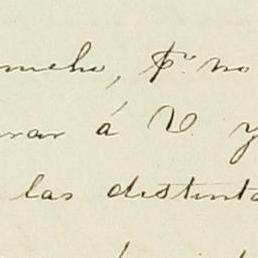 mucho, Pr. no
rar á V. y
las distint